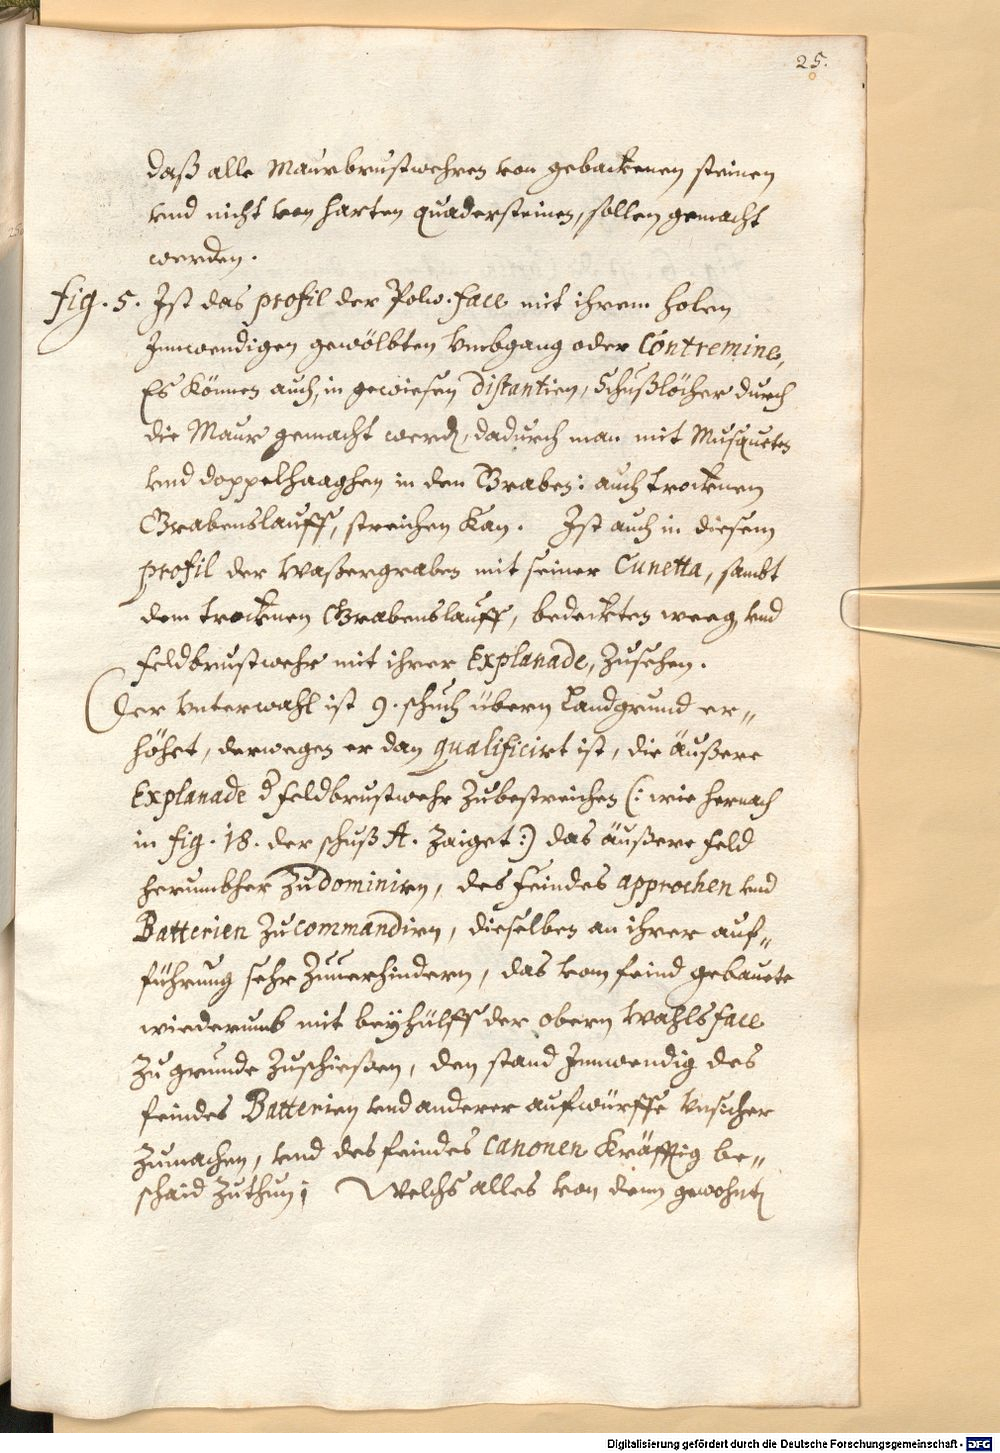 25.
daß alle Maurbrustwehren von gebackenen steinen
vnd nicht von harten quadersteinen, sollen gemacht
werden.
fig. 5. Ist das profil der Polw. face mit ihrem holen
Innwendigen gewölbten Vmbgang oder Contremine,
Es können auch, in gewiesen distantien, Schußlöcher durch
die Maur gemacht werdn, dadurch man mit Musqueten
vnd doppelhaaghen in den Graben: auch trockenen
Grabenslauff, streichen kan. Ist auch in diesem
profil der Waßergraben mit seiner Cunetta, sambt
dem trockenen Grabenslauff, bedeckten weeg, vnd
feldbrustwehr mit ihrer Explanade, zusehen.
Der Vnterwahl ist 9. schuch übern Landgrund er„
höhet, derwegen er dan qualificirt ist, die äußere
Explanade der feldbrustwehr zubestreichen (: wie hernach
in fig. 18. der schuß A. zaiget :) das äußere feld
herumbher zu dominirn, des feindes approchen vnd
Batterien zu commandirn, dieselben an ihrer auf„
führung sehr zuuerhindern, das vom feind gebauete
wiederumb mit beyhülff der obern Wahls face
zu grunde zuschießen, den stand Innwendig des
feindes Batterien vnd anderer aufwürffe Vnsicher
zumachen, vnd des feindes Canonen kräfftig be„
schaid zuthun; Welchs alles von denn gewohntn
Digitalisierung gefördert durch die Deutsche Forschungsgemeinschaft - DFG